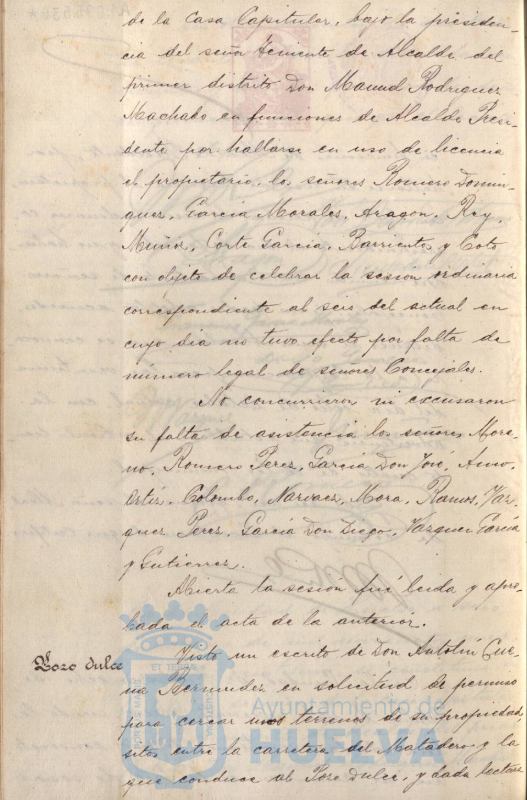 de la Casa Capitular, bajo la presiden-
cia del señor Teniente de Alcalde del
primer distrito Don Manuel Rodriguez
Machado en funciones de Alcalde Presi-
dente por hallarse en uso de licencia
el propietario, los señores Romero Domin-
guez, Garcia Morales, Aragon, Rey,
Muñoz, Corte Garcia, Barrientos y Coto
con objeto de celebrar la sesión ordinaria
correspondiente al seis del actual en
cuyo dia no tuvo efecto por falta de
número legal de señores Concejales.
No concurrieron ni excusaron
su falta de asistencia los señores More-
no, Romero Perez, Garcia Don José,
Ortiz, Colombo, Narvaez, Mora, Ramos, Vaz-
quez Perez, Garcia Don Diego, Vazquez Garcia
y Gutierrez.
Abierta la sesión fué leida y apro-
bada el acta de la anterior.
Pozo dulce
Visto un escrito de Don Antolín Cue-
va Bermudez en solicitud de permiso
para cercar unos terrenos de su propiedad
sitos entre la carretera del Matadero y la
que conduce al Pozo Dulce, y dada lectura
Ayuntamiento de
HUELVA